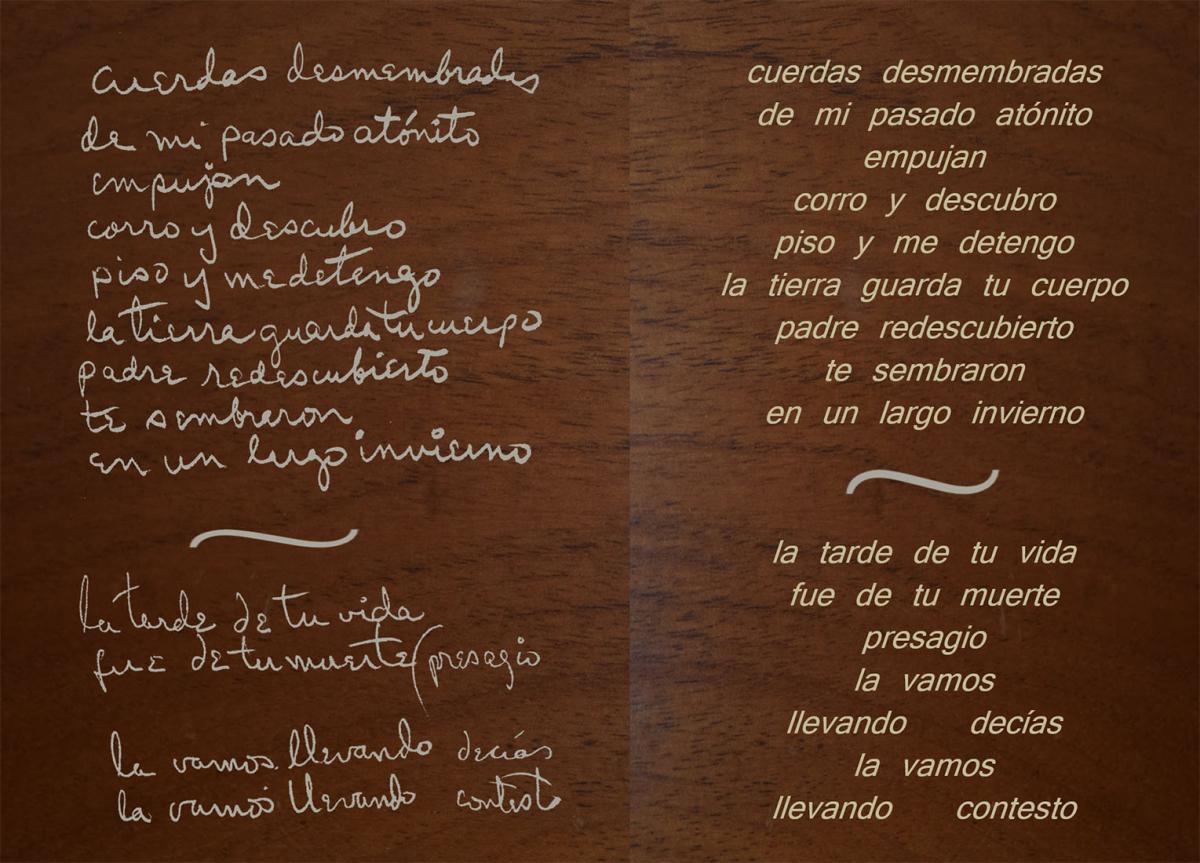 cuerdas desmembradas
de mi pasado atónito
empujan
corro y descubro
piso y me detengo
la tierra guarda tu cuerpo
padre redescubierto
te sembraron
en un largo invierno
la tarde de tu vida
fue de tu muerte (presagio
la vamos llevando decías
la vamos llevando contesto
cuerdas desmembradas
de mi pasado atónito
empujan
corro y descubro
piso y me detengo
la tierra guarda tu cuerpo
padre redescubierto
te sembraron
en un largo invierno
la tarde de tu vida
fue de tu muerte
presagio
la vamos
llevando decías
la vamos
llevando contesto